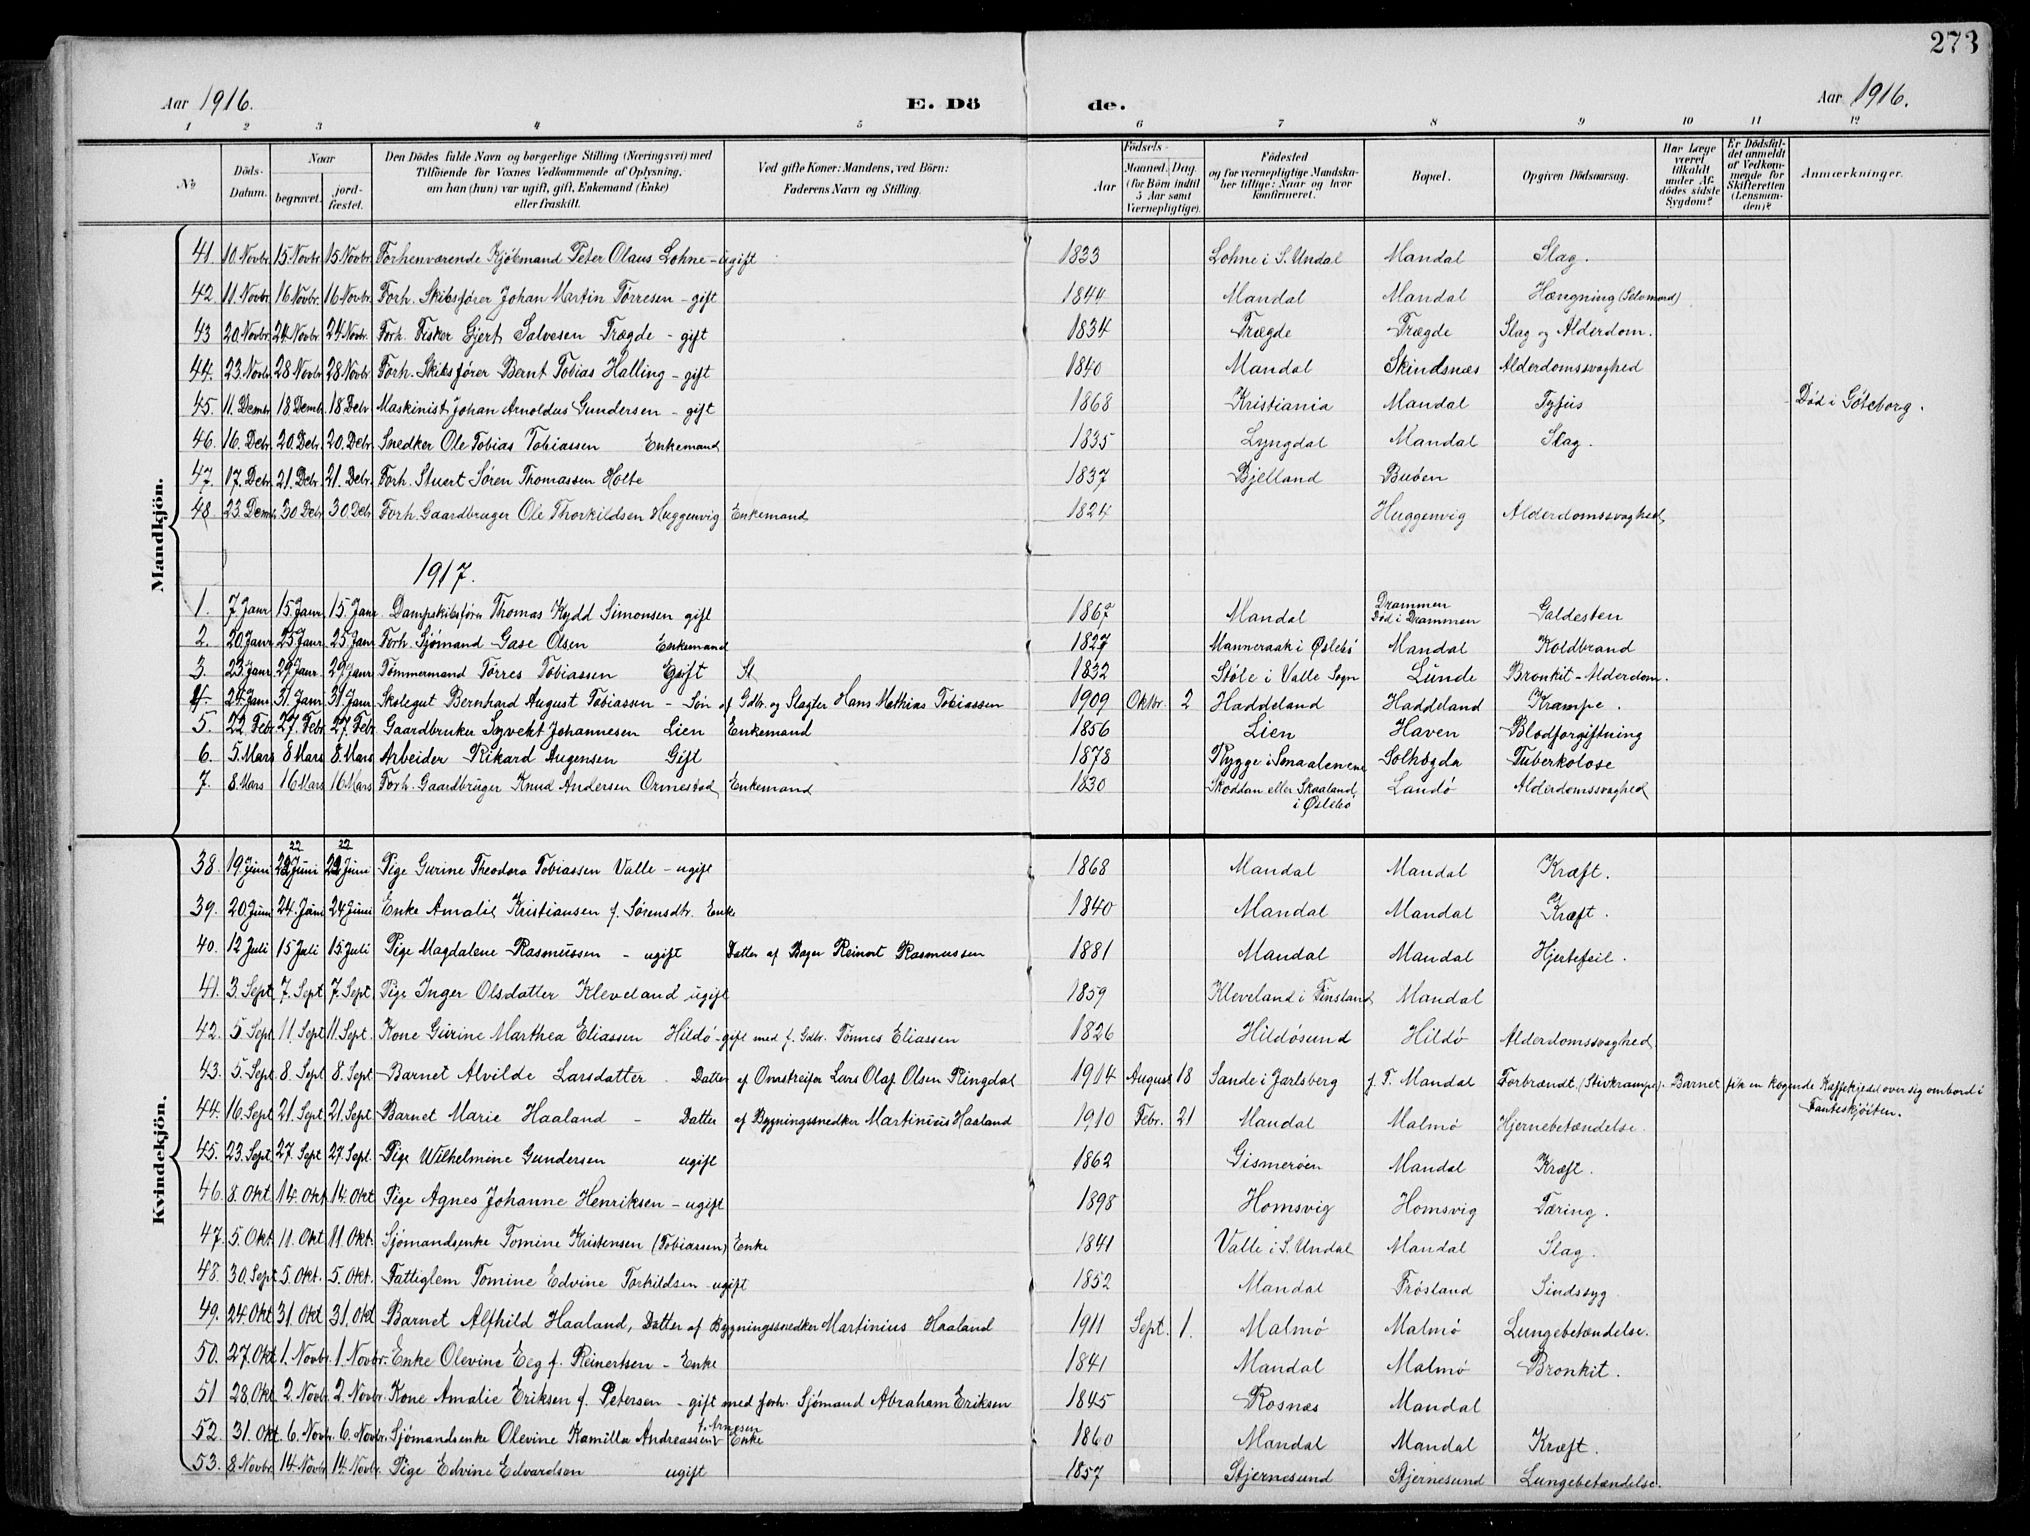 273
Aar 1916. E. Dö de. Aar 1916.
1 2 3 4 5 6 7 8 9 10 11 12
No Döds-Datum. Naar begravet. jord-fæstet. Den Dödes fulde Navn og borgerlige Stilling (Næringsvei) med Tilföiende for Voxnes Vedkommende af Oplysning, om han (hun) var ugift, gift, Enkemand (Enke) eller fraskilt. Ved gifte Koner: Mandens, ved Börn: Faderens Navn og Stilling. Aar Födsels- Maaned. Dag. (for Börn indtil 5 Aar samt Værnepligtige). Födested og for værnepligtige Mandska-ber tillige: Naar og hvor konfirmeret. Bopæl. Opgiven Dödsaarsag. Har Læge været tilkaldt under Af-dödes sidste Sygdom? Er Dödsfal-det anmeldt af Vedkom-mende for Skifteretten (Lensman-den)? Anmærkninger.
Mandkjön.
41. 10. Novbr. 15. Novbr 15 Novbr Forhenværende Kjøbmand Peter Olaus Lohne - ugift 1833 Lohne i S. Undal Mandal Slag.
42. 11. Novbr. 16 Novbr. 16 Novbr. Forh. Skibsfører Johan Martin Tørresen - gift 1844 Mandal Mandal Hængning (Selvmord)
43 20. Novbr 24 Novbr 24 Novbr. Forh. Fisker Gjert Salvesen Trægde - gift 1834 Trægde Trægde Slag og Alderdom.
44. 23. Novbr. 28 Novbr 28 Novbr. Forh. Skibsfører Bernt Tobias Halling - gift 1840 Mandal Skindsnæs Alderdomssvaghed
45. 11. Dembr 18 Demb. 18 Debr Maskinist Johan Arnoldus Gundersen - gift 1868 Kristiania Mandal Tyfus Død i Göteborg.
46. 16. Debr 20. Debr. 20. Debr. Snedker Ole Tobias Tobiassen Enkemand 1835 Lyngdal Mandal Slag.
47. 17. Debr 21. Debr. 21. Debr. Forh. Stuert Søren Thomassen Holte 1837 Bjelland Buøen
48. 23. Demb. 30 Debr. 30. Debr Forh. Gaardbruger Ole Thorkildsen Huggenvig Enkemand 1824 Huggenvig Alderdomssvaghed
1917.
1. 7 Janr 15. Janr 15. Janr. Dampskibsførn Thomas Kydd Simonsen gift 1867 Mandal Drammen Død i Drammen Galdesten
2. 20. Janr 25 Janr. 25. Janr Forh. Sjømand Gase Olsen Enkemand 1827 Manneraak i Øslebø Mandal Koldbrand
3. 23. Janr 29 Janr. 29 Janr Tømmermand Tørres Tobiassen Gift 1832 Støle i Valle Sogn Lunde Bronkit - Alderdom.
4. 24. Janr 31 Janr 31 Janr Skolegut Bernhard August Tobiassen - Søn af Gdbr. og Slagter Hans Mathias Tobiassen 1909 Oktbr. 2 Haddeland Haddeland Krampe.
5. 22. Febr 27. Febr 27. Febr Gaardbruker Syvert Johannesen Lien Enkemand 1856 Lien Haven Blodforgiftning
6. 5. Mars 8 Mars 8. Mars Arbeider Rikard Augensen Gift 1878 Rygge i Smaalenene Solhøgda Tuberkolose
7. 8 Mars 16 Mars 16 Mars Forh. Gaardbruger Knud Andersen Ormestad Enkemand 1830 Skoddan eller Skaaland i Øslebø Landø Alderdomssvaghed
Kvindekjön.
22 22
38. 19. Juni Juni Juni Pige Gurine Theodora Tobiassen Valle - ugift 1868 Mandal Mandal Kræft.
39. 20. Juni 24. Juni 24 Juni Enke Amalie Kristiansen f. Sørensdtr. Enke 1840 Mandal Mandal Kræft.
40. 12 Juli 15 Juli 15. Juli Pige Magdalene Rasmussen - ugift Datter af Bager Reinert Rasmussen 1881 Mandal Mandal Hjertefeil.
41. 3. Sept. 7. Sept 7. Sept. Pige Inger Olsdatter Kleveland ugift 1859 Kleveland i Finsland Mandal
42. 5. Sept 11. Sept 11. Sept. Kone Gurine Marthea Eliassen Hildø - gift med f. Gdbr. Tønnes Eliassen 1826 Hildøsund Hildø Alderdomssvaghed
43. 5. Sept. 8. Sept 8. Sept Barnet Alvilde Larsdatter. Datter af Omstreifer Lars Olaf Olsen Ringdal 1914 August 18 Sande i Jarlsberg f. T. Mandal Forbrændt. (Stivkrampe). Barnet fik en kogende Kaffekjedel over sig ombord i
Fanteskjöiten.
44. 16. Sept 21. Sept 21. Sept Barnet Marie Haaland - Datter af Bygningssnedker Martinius Haaland 1910 Febr. 21 Mandal Malmø Hjernebetændelse.
45. 23. Sept. 27 Sept 27. Sept. Pige Wilhelmine Gundersen ugift 1862 Gismerøen Mandal Kræft.
46. 8. Okt. 14. Okt 14. Okt Pige Agnes Johanne Henriksen - ugift 1898 Homsvig Homsvig Tæring.
47. 5. Okt. 11. Okt 11. Okt. Sjømandsenke Tomine Kristensen (Tobiassen) Enke 1841 Valle i S. Undal Mandal Slag.
48. 30. Sept 5. Okt. 5. Okt. Fattiglem Tomine Edvine Torkildsen - ugift 1852 Mandal Frøsland Sindssyg
49. 24. Okt. 31. Okt 31. Okt Barnet Alfhild Haaland, Datter af Bygningssnedker Martinius Haaland 1911 Sept. 1. Malmø Malmø Lungebetændelse.
50. 27. Okt 1. Novbr. 1. Novbr. Enke Olevine Eeg f. Reinertsen - Enke 1841 Mandal Malmø Bronkit.
51 28. Okt. 2. Novbr. 2. Novbr. Kone Amalie Eriksen f. Petersen - gift med forh. Sjømand Abraham Eriksen 1845 Rosnæs Mandal
f. Arnesen
52. 31. Okt. 6. Novbr. 6. Novbr. Sjømandsenke Olevine Kamilla Andreassen Enke 1860 Mandal Mandal Kræft.
53. 8. Novbr. 14. Novbr 14. Novbr. Pige Edvine Edvardsen ugift 1857 Stjernesund Stjernesund Lungebetændelse.